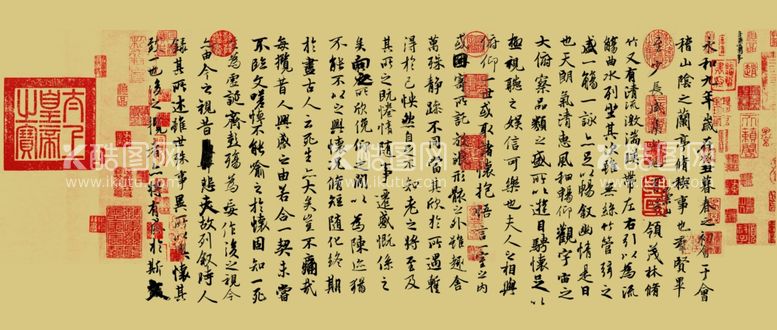 永和九年歲在癸丑暮春之初會于會
稽山陰之蘭亭脩稧事也羣賢畢
至少長咸集領茂林脩
竹又有清流激湍暎帶左右引以為流
觴曲水列坐其次雖無絲竹管弦之
盛一觴一詠亦足以暢敘幽情是日
也天朗氣清惠風和暢仰觀宇宙之
大俯察品類之盛所以遊目騁懷足以
極視聽之娛信可樂也夫人之相與
俯仰一世或取諸懷抱悟言一室之內
或因寄所託放浪形骸之外雖趣舍
萬殊靜躁不同當其欣於所遇暫
得於己怏然自足不知老之將至及
其所之既惓情隨事遷感慨係之
矣向之所欣俛仰之間以為陳迹猶
不能不以之興懷況脩短隨化終期
於盡古人云死生亦大矣豈不痛哉
每攬昔人興感之由若合一契未嘗
不臨文嗟悼不能喻之於懷固知一死
生為虛誕齊彭殤為妄作後之視今
亦由今之視昔悲夫故列敘時人
錄其所述雖世殊事異所以興懷其
致一也後之攬者亦將有感於斯文
太上皇帝之寶
酷图网
www.ikutu.com